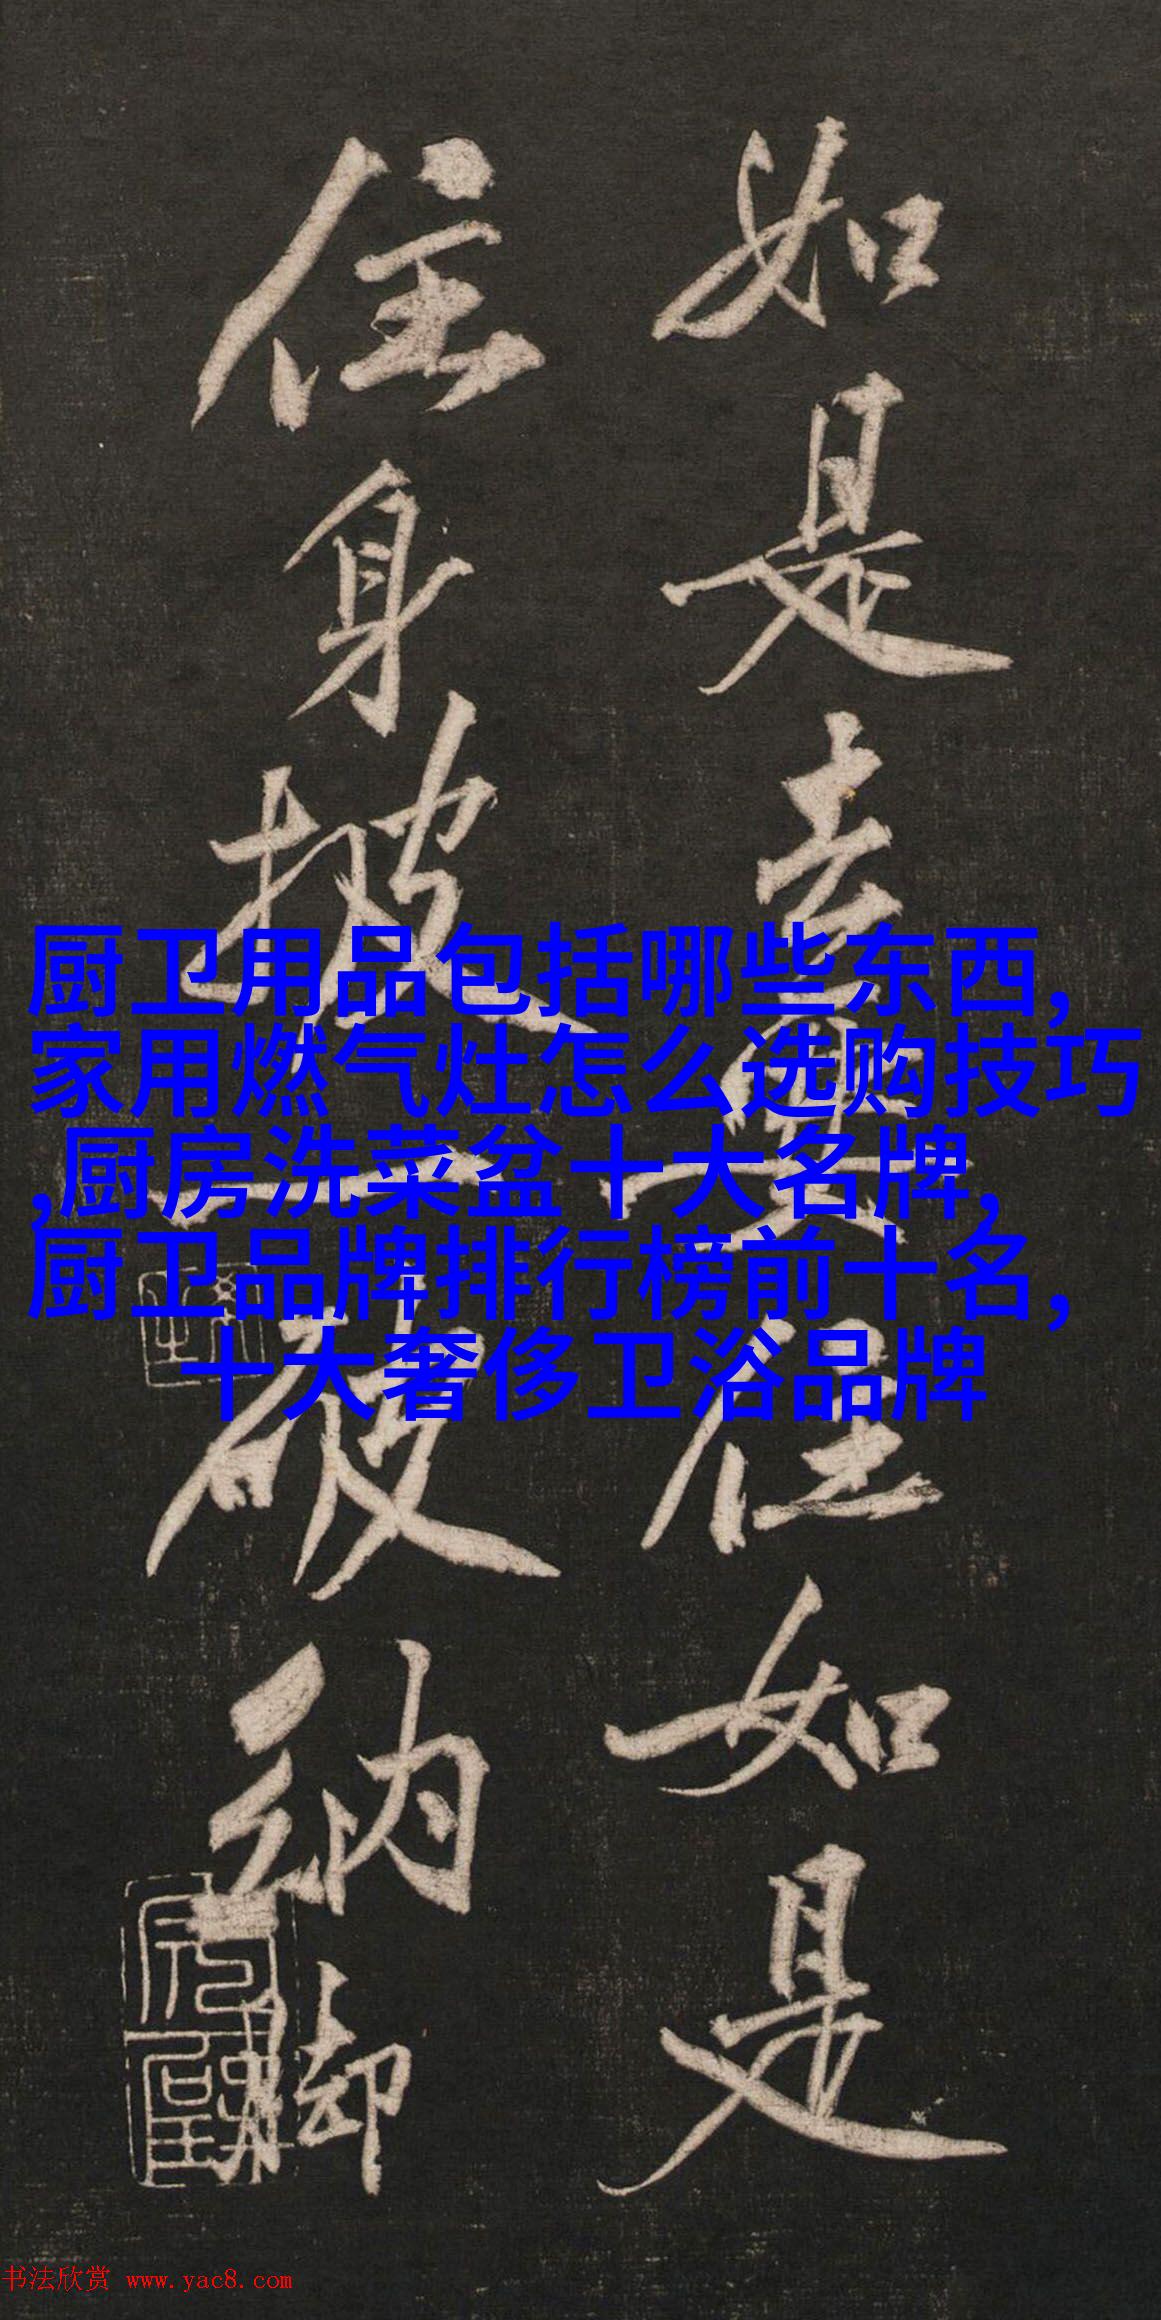 如是去與住如是
住身披一破衲脚
厨卫用品包括哪些东西,
家用燃气灶怎么选购技巧
,厨房洗菜盆十大名牌,
厨卫品牌排行榜前十名,
十大奢侈卫浴品牌
书法欣赏 www.yac8.com